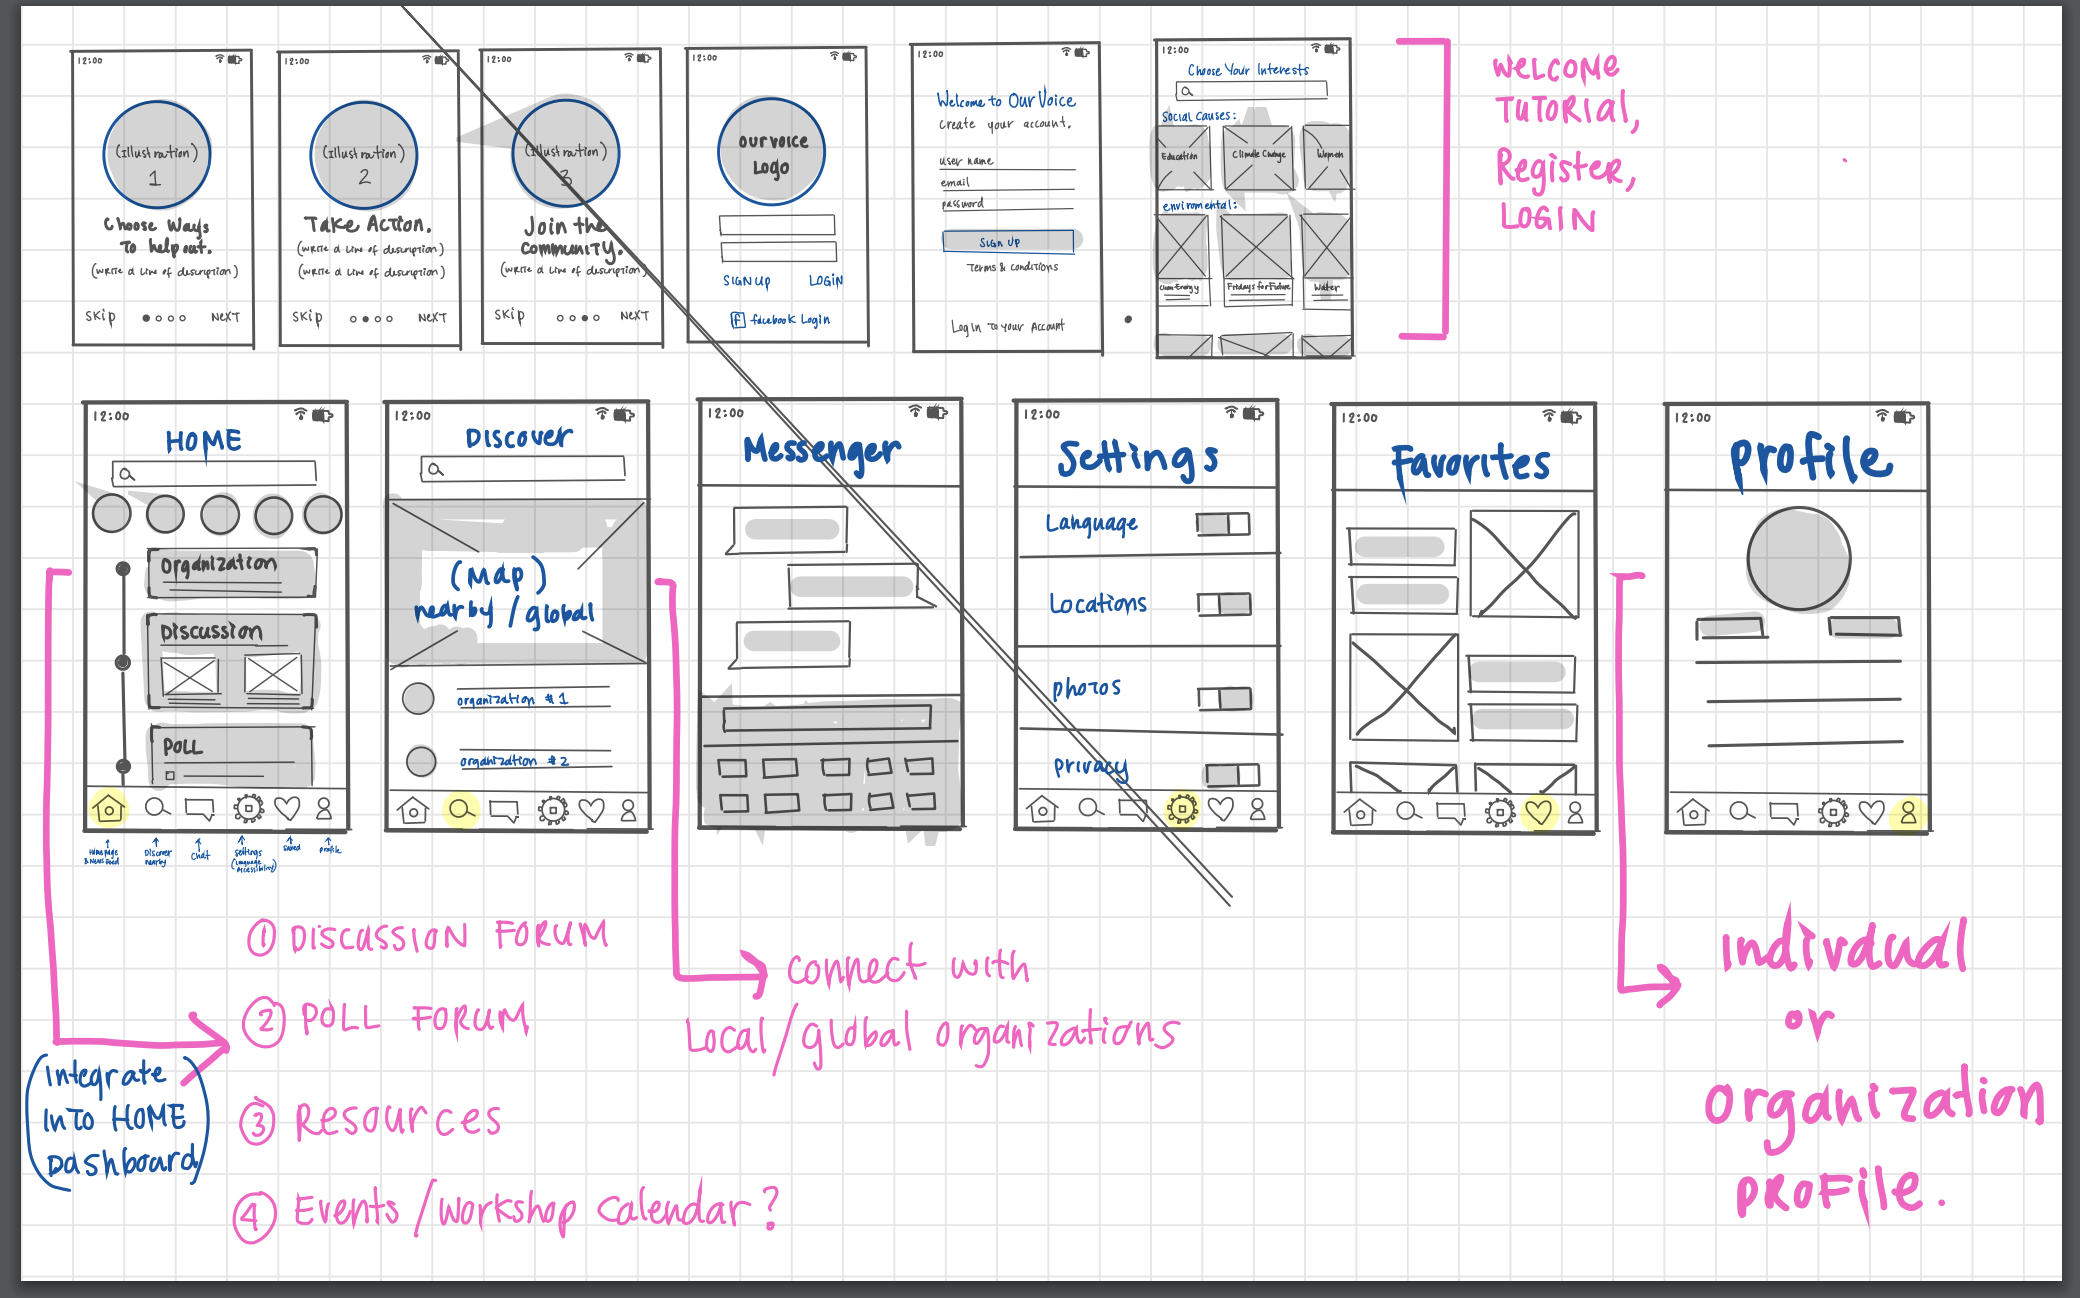 12:00
(Illustration)
1
Choose Ways
To help out.
(write a line of description)
Skip
NEXT
12:00
(Illustration)
2
Take Action.
(write a line of description)
(write a line of description)
Skip
NEXT
12:00
(Illustration)
3
Join the
community.
(write a line of description)
Skip
NEXT
12:00
our voice
Logo
SIGN UP
LOGIN
f facebook Login
12:00
Welcome to Our Voice
Create your account.
user name
email
password
SIGN UP
Terms & conditions
Log In To your Account
12:00
Choose Your Interests
Social Causes:
Education
Climate Change
Women
enviromental:
Clean Energy
Fridays for Future
Water
WELCOME
TUTORIAL,
Register,
LOGIN
12:00
HOME
Organization
Discussion
POLL
Homepage
& News Feed
Discover
nearby
Chat
Settings
(Language
Accessibility)
Saved
Profile
12:00
Discover
(Map)
nearby / global
organization #1
organization #2
12:00
Messenger
12:00
Settings
Language
Locations
photos
privacy
12:00
Favorites
12:00
profile
(Integrate
INTO HOME
Dashboard)
① DISCUSSION FORUM
② POLL FORUM
③ Resources
④ Events / Workshop Calendar?
connect with
Local / global organizations
Indivdual
or
organization
PROFile.